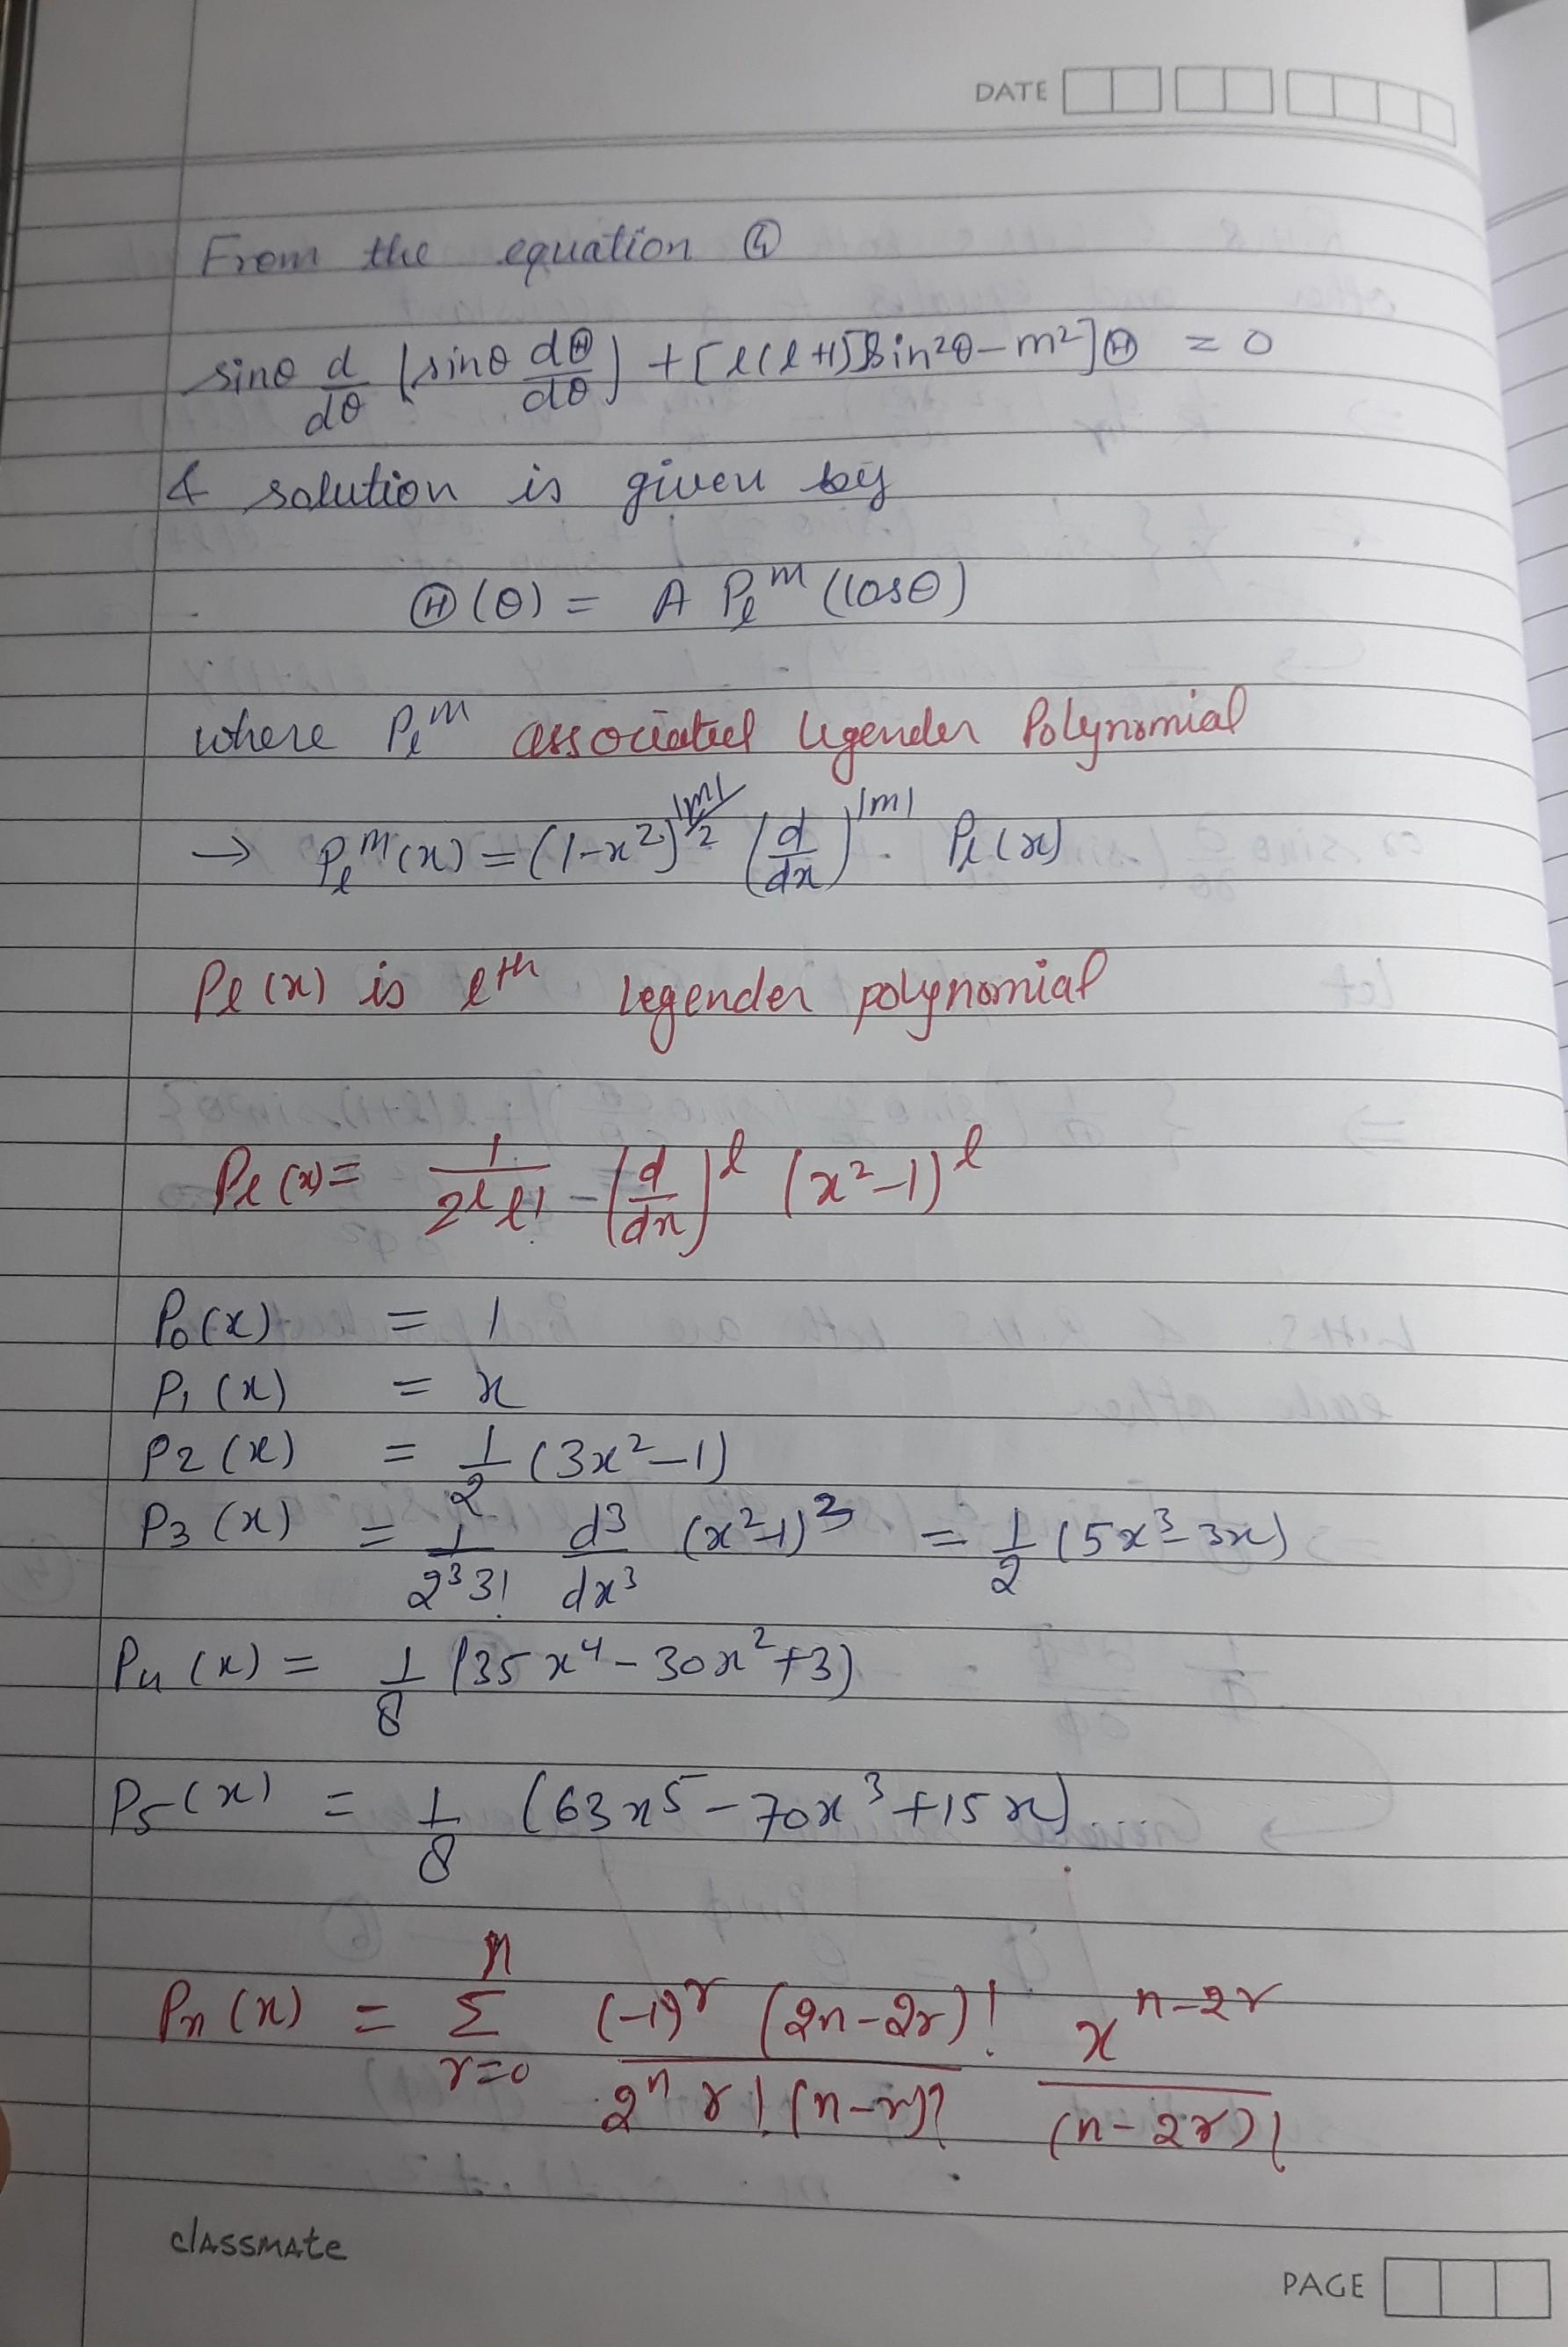 DATE
From the equation ④
sinθ d/dθ (sinθ dΘ/dθ) + [l(l+1)]sin²θ - m²]Θ = 0
& solution is given by
Θ(θ) = A Pₗᵐ (cosθ)
where Pₗᵐ associated legender Polynomial
→ Pₗᵐ(x) = (1-x²)^|m|/2 (d/dx)^|m| Pₗ(x)
Pₗ(x) is lᵗʰ legender polynomial
Pₗ(x) = 1/2ˡ l! - (d/dx)ˡ (x²-1)ˡ
P₀(x) = 1
P₁(x) = x
P₂(x) = 1/2 (3x²-1)
P₃(x) = 1/2³3! d³/dx³ (x²-1)³ = 1/2 (5x³-3x)
P₄(x) = 1/8 (35x⁴-30x²+3)
P₅(x) = 1/8 (63x⁵-70x³+15x)...
Pₙ(x) = Σ r=0 n (-1)^r (2n-2r)!/2ⁿ r! (n-r)! x^n-2r/(n-2r)!
classmate
PAGE